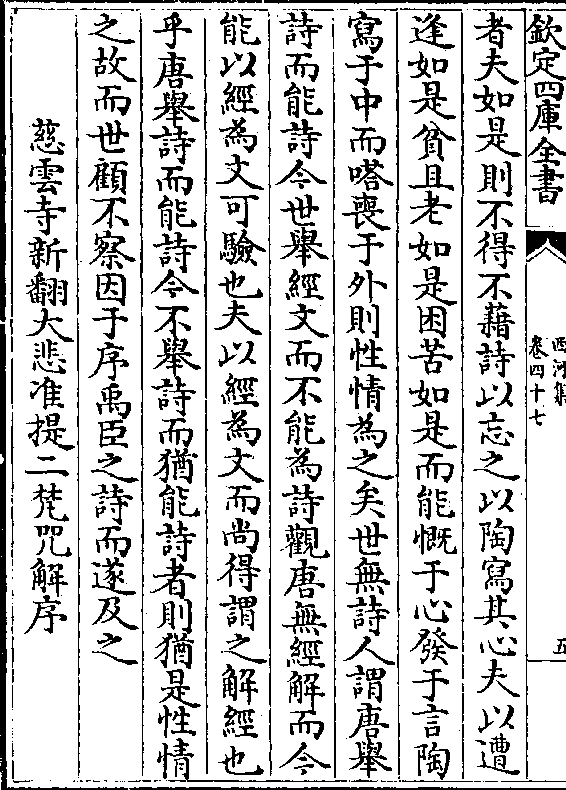 欽定四庫全書
西河集
卷四十七
五
者夫如是則不得不藉詩以忘之以陶寫其心夫以遭
逢如是貧且老如是困苦如是而能慨于心發于言陶
寫于中而嗒喪于外則性情為之矣世無詩人謂唐舉
詩而能詩今世舉經文而不能為詩觀唐無經解而今
能以經為文可驗也夫以經為文而尚得謂之解經也
乎唐舉詩而能詩今不舉詩而猶能詩者則猶是性情
之故而世顧不察因于序禹臣之詩而遂及之
慈雲寺新翻大悲准提二梵咒解序